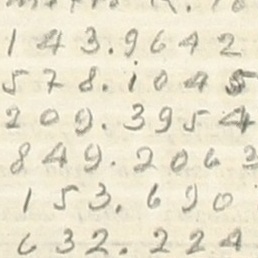 143.9642
578.1045
209.3954
849.2063
153.690
632.224